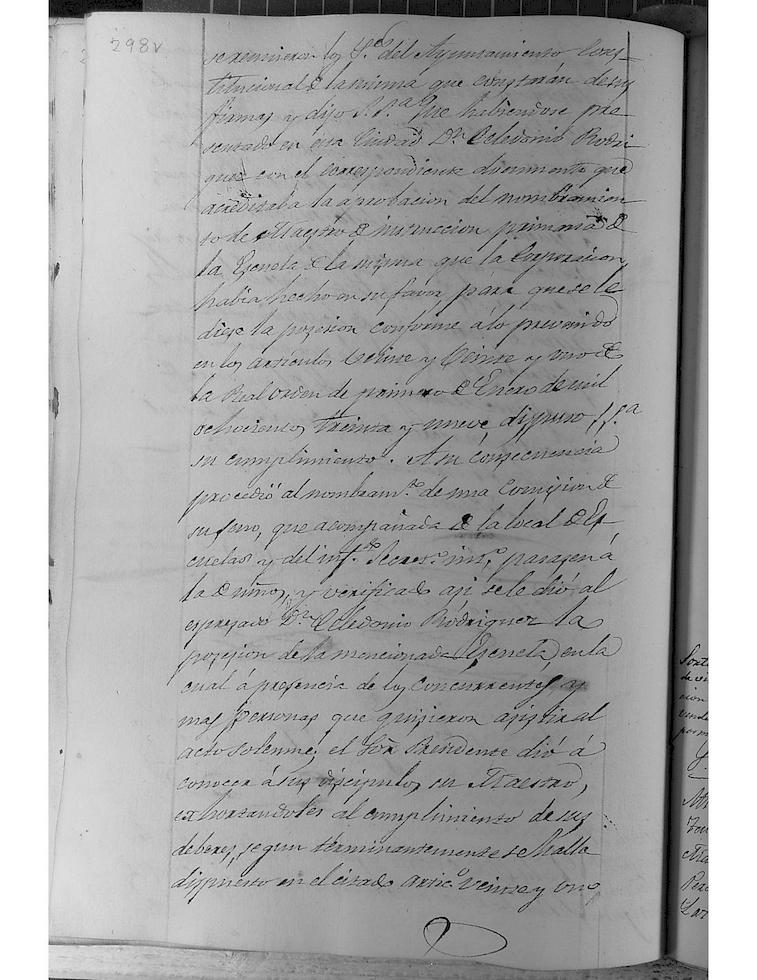 298v
se reunieron los S.es del Ayuntamiento Cons-
titucional de la misma que constarán de sus
firmas y dijo S.S.a Que habiendose pre-
sentado en esta Ciudad D.n Celedonio Rodri
guez con el correspondiente documento que
acreditaba la aprobacion del nombramien-
to de Maestro de instruccion primaria de
la Escuela de la misma que la Corporacion
habia hecho en su favor, para que se le
diese la posesion conforme á lo prevenido
en los articulos veinte y veinte y uno de
la Real orden de primero de Enero de mil
ochocientos treinta y nueve, dispuso S.S.a
su cumplimiento. A su consecuencia
procedió al nombram.to de una Comision de
su seno, que acompañada de la local de Es-
cuelas y del inf.to Secres.o int.o pasasen á
la de niños, y verificado asi se le dió al
espresado D.n Celedonio Rodriguez la
posesion de la mencionada Escuela, en la
cual á presencia de los concurrentes y
mas personas que quisieron asistir al
acto solemne, el Señ Presidente dió á
conocer á sus discipulos su Maestro,
exhortandoles al cumplimiento de sus
deberes, segun terminantemente se halla
dispuesto en el citado artic.o veinte y uno